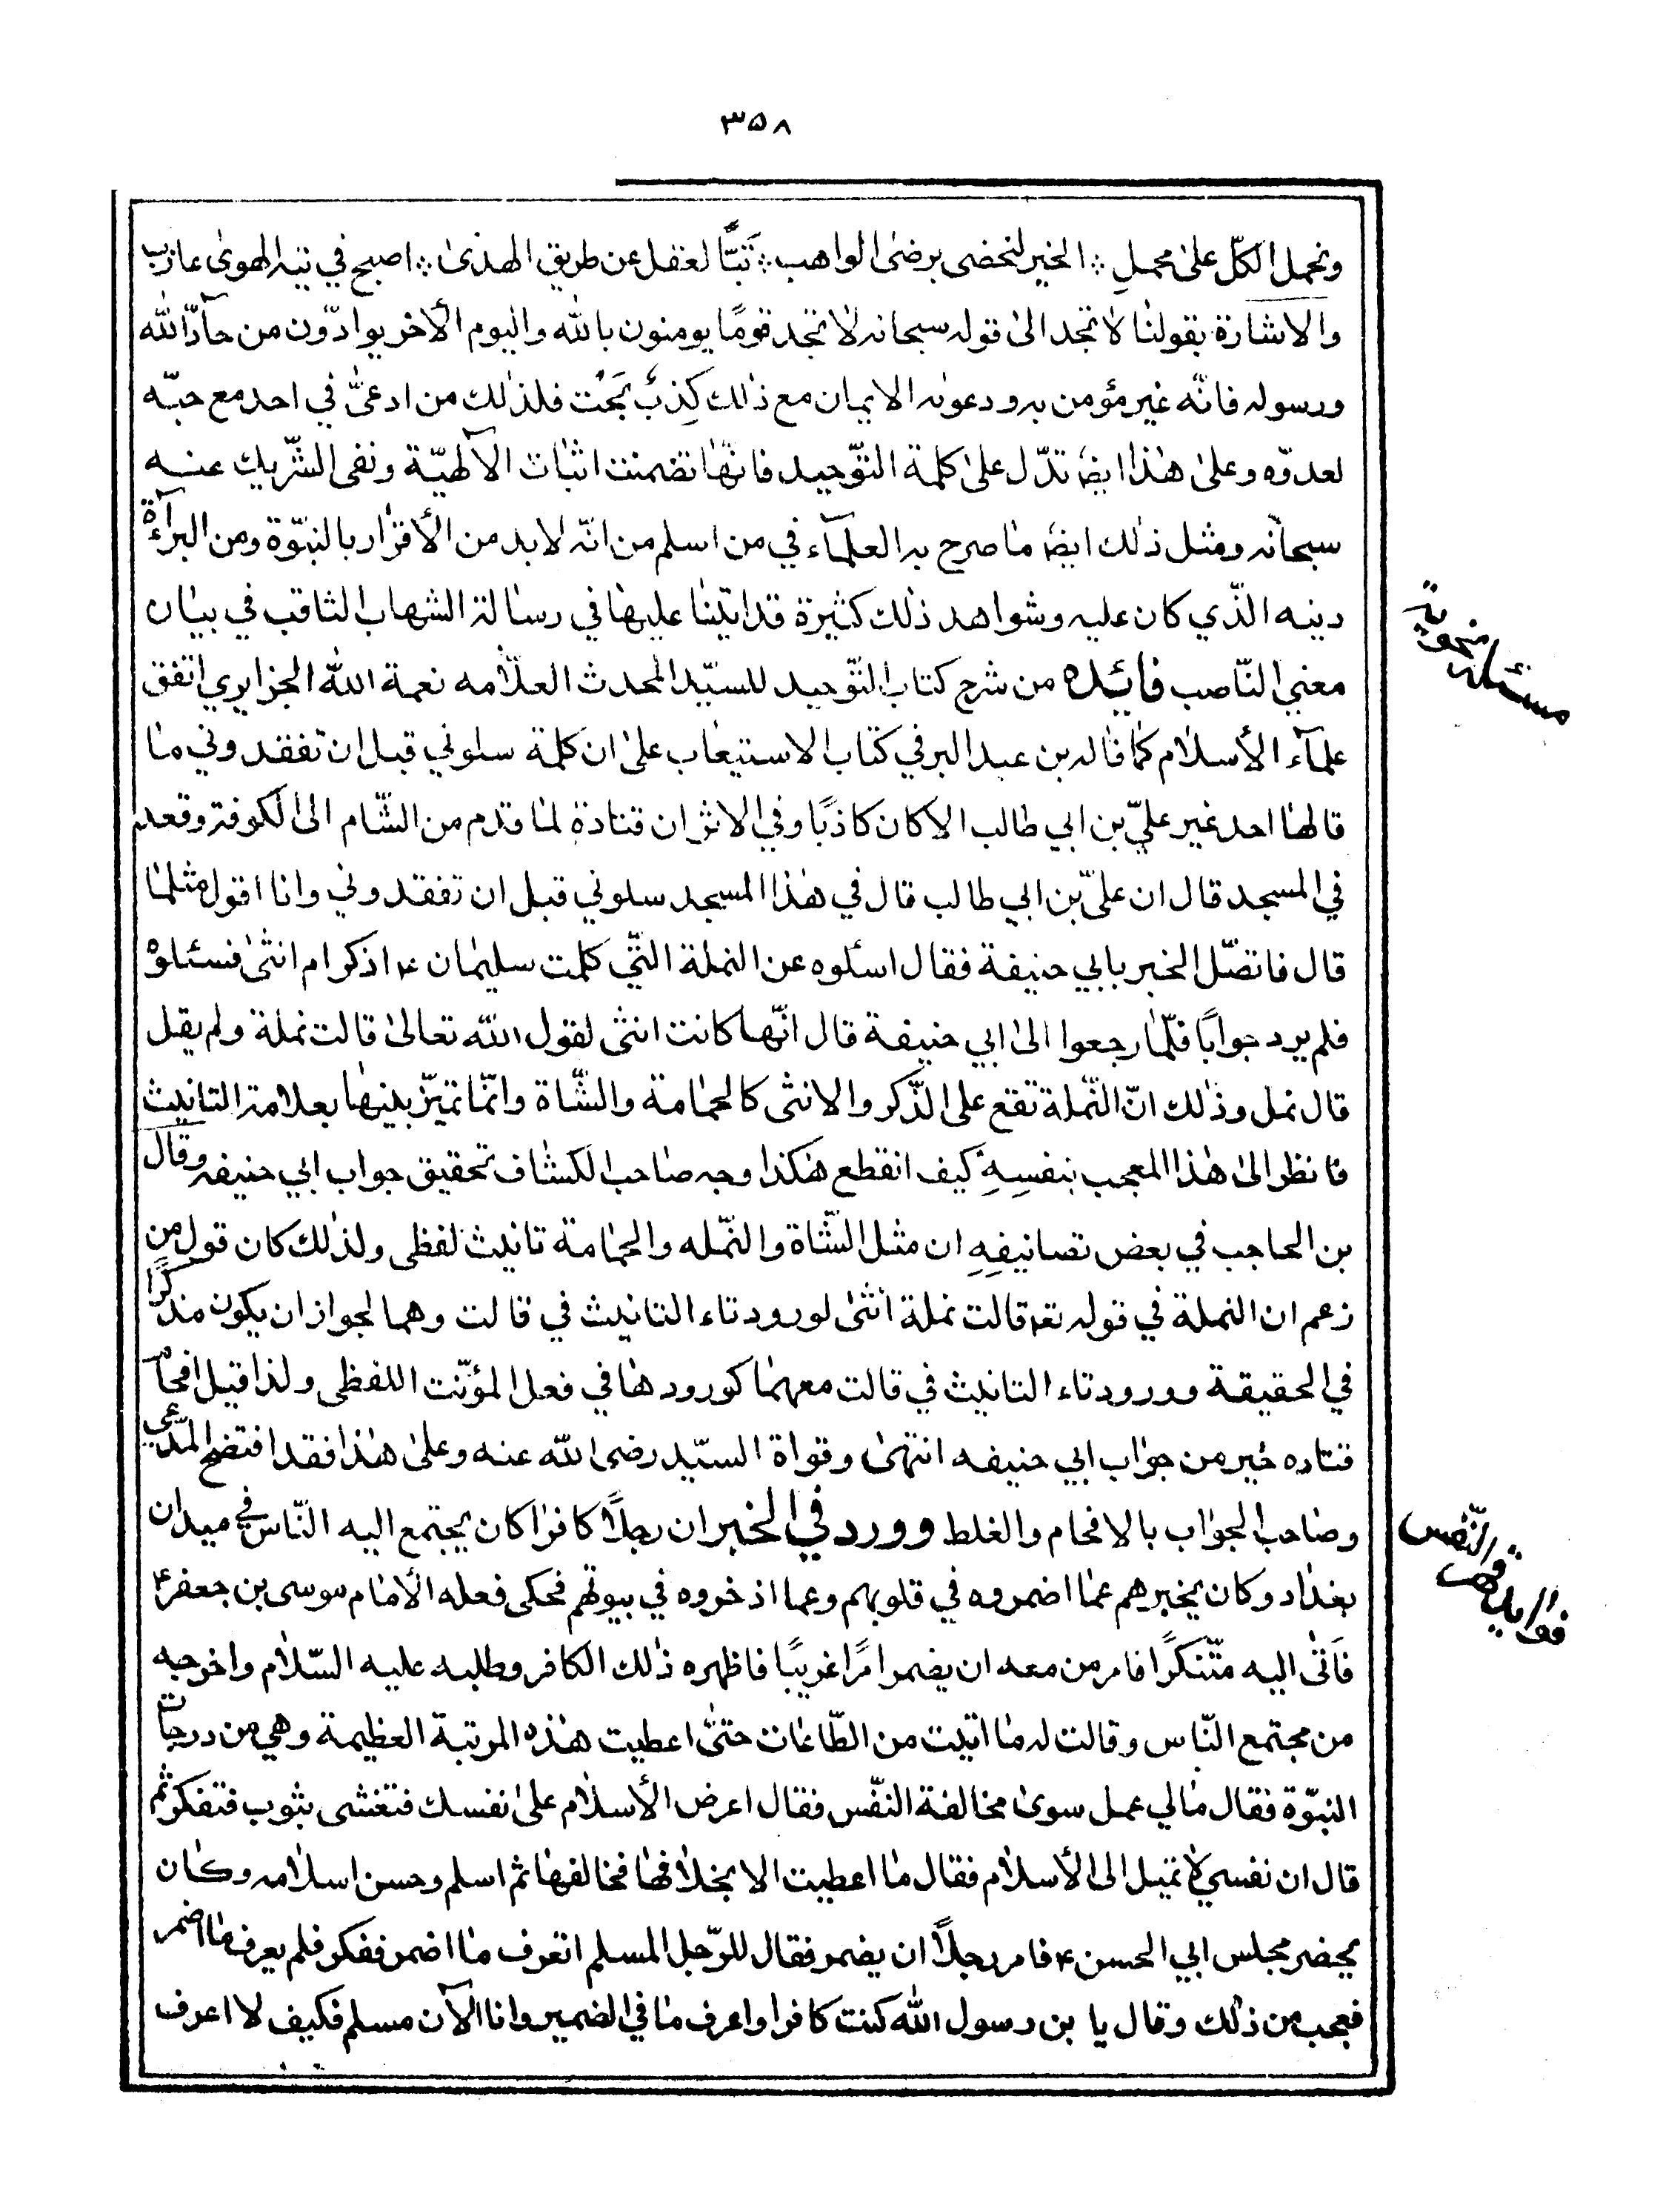 ٣٥٨
ونحمل الكلّ على محمل ۞ الخير لنحضى برضى الواهب ۞ تبًّا لعقل عن طريق الهدىٰ ۞ اصبح في تيه الهوىٰ عازب
والاشارة بقولنا لا تجد الىٰ قوله سبحانه لا تجد قومًا يومنون بالله واليوم الأخر يوادّون من حآدّ الله
ورسوله فانّه غير مؤمن به ودعوىٰه الايمان مع ذٰلك كِذبٌ بَحْت فلذٰلك من ادعىّٰ في احد مع حبّه
لعدوّه وعلىٰ هٰذا ايضا تدّل علىٰ كلمة التوّحيد فانهّا تضمنت اثبات الآلهيّة ونفى الشّريك عنه
سبحانه ومثل ذٰلك ايضا ما صرح به العلمآء في من اسلم من انّه لا بد من الأقرار بالنبوّة ومن البراءة
دينه الّذي كان عليه وشواهد ذٰلك كثيرة قد اتينا عليها في رسالة الشهاب الثاقب في بيان
معنى النّاصب فائده من شرح كتاب التوّحيد للسيّد المحدث العلاّمه نعمة الله الجزايري اتفق
علمآء الأسلام كما قاله بن عبد البر في كتاب الاستيعاب علىٰ ان كلمة سلوني قبل ان تفقدوني ما
قالها احد غير عليّ بن ابي طالب الا كان كاذبًا وفي الاثر ان قتادة لما قدم من الشّام الى الكوفة وقعد
في المسجد قال ان عليّ بن ابي طالب قال في هٰذا المسجد سلوني قبل ان تفقدوني وانا اقول مثلما
قال فاتصّل الخبر بابي حنيفة فقال اسئلوه عن النملة التّي كلمت سليمان ع اذكر ام انثىٰ فسئلوه
فلم يرد جوابًا فلمّا رجعوا الىٰ ابي حنيفة قال انّها كانت انثى لقول الله تعالىٰ قالت نملة ولم يقل
قال نمل وذٰلك انّ النّملة تقع على الذّكر والانثى كالحمامة والشّاة وانّما تميّز بينها بعلامة التانيث
فانظر الىٰ هٰذا المعجب بنفسِهِ كيف انقطع هٰكذا وجه صاحب الكشاف تحقيق جواب ابي حنيفه وقال
بن الحاجب في بعض تصانيفِهِ ان مثل الشّاة والنّمله والحمامة تانيث لفظى ولذٰلك كان قول من
زعم ان النملة في قوله تع قالت نملة أنثىٰ لورود تاء التانيث في قالت وهما لجواز ان يكون مذكرًا
في الحقيقة وورود تاء التانيث في قالت معهما كورودها في فعل المؤنّث اللفظى ولذا قيل افحام
قتاده خير من جواب ابي حنيفه انتهىٰ وقواة السيّد رضى الله عنه وعلىٰ هٰذا فقد افتضح المدّعي
وصاحب الجواب بالافحام والغلط وورد في الخبر ان رجلاً كافرا كان يجتمع اليه النّاس في ميدان
بغداد وكان يخبرهم عما اضمروه في قلوبهم وعما اذخروه في بيوتهم فحكى فعله الأمام موسى بن جعفر ع
فَاَتىٰ اليه متّنكرًا فامر من معه ان يضمر امرًا غريبًا فاظهره ذٰلك الكافر وطلبه عليه السّلام واخرجه
من مجتمع النّاس وقالت له ما اتيت من الطّاعات حتىّٰ اعطيت هٰذه المرتبة العظيمة وهي من درجات
النبوّة فقال مالي عمل سوىٰ مخالفة النفّس فقال اعرض الأسلام علىٰ نفسك فتغشى بثوب فتفكر ثم
قال ان نفسي لا تميل الى الأسلام فقال ما اعطيت الا بخلافها فخالفها ثم اسلم وحسن اسلامه وكان
يحضر مجلس ابي الحسن ع فامر رجلاً ان يضمر فقال للرّجل المسلم اتعرف ما اضمر ففكر فلم يعرف ما اضمر
فعجب من ذٰلك وقال يا بن رسول الله كنت كافرا واعرف ما في الضمير وانا الآن مسلم فكيف لا اعرف
مسئلة نحوية
فوايد قهر النّفس